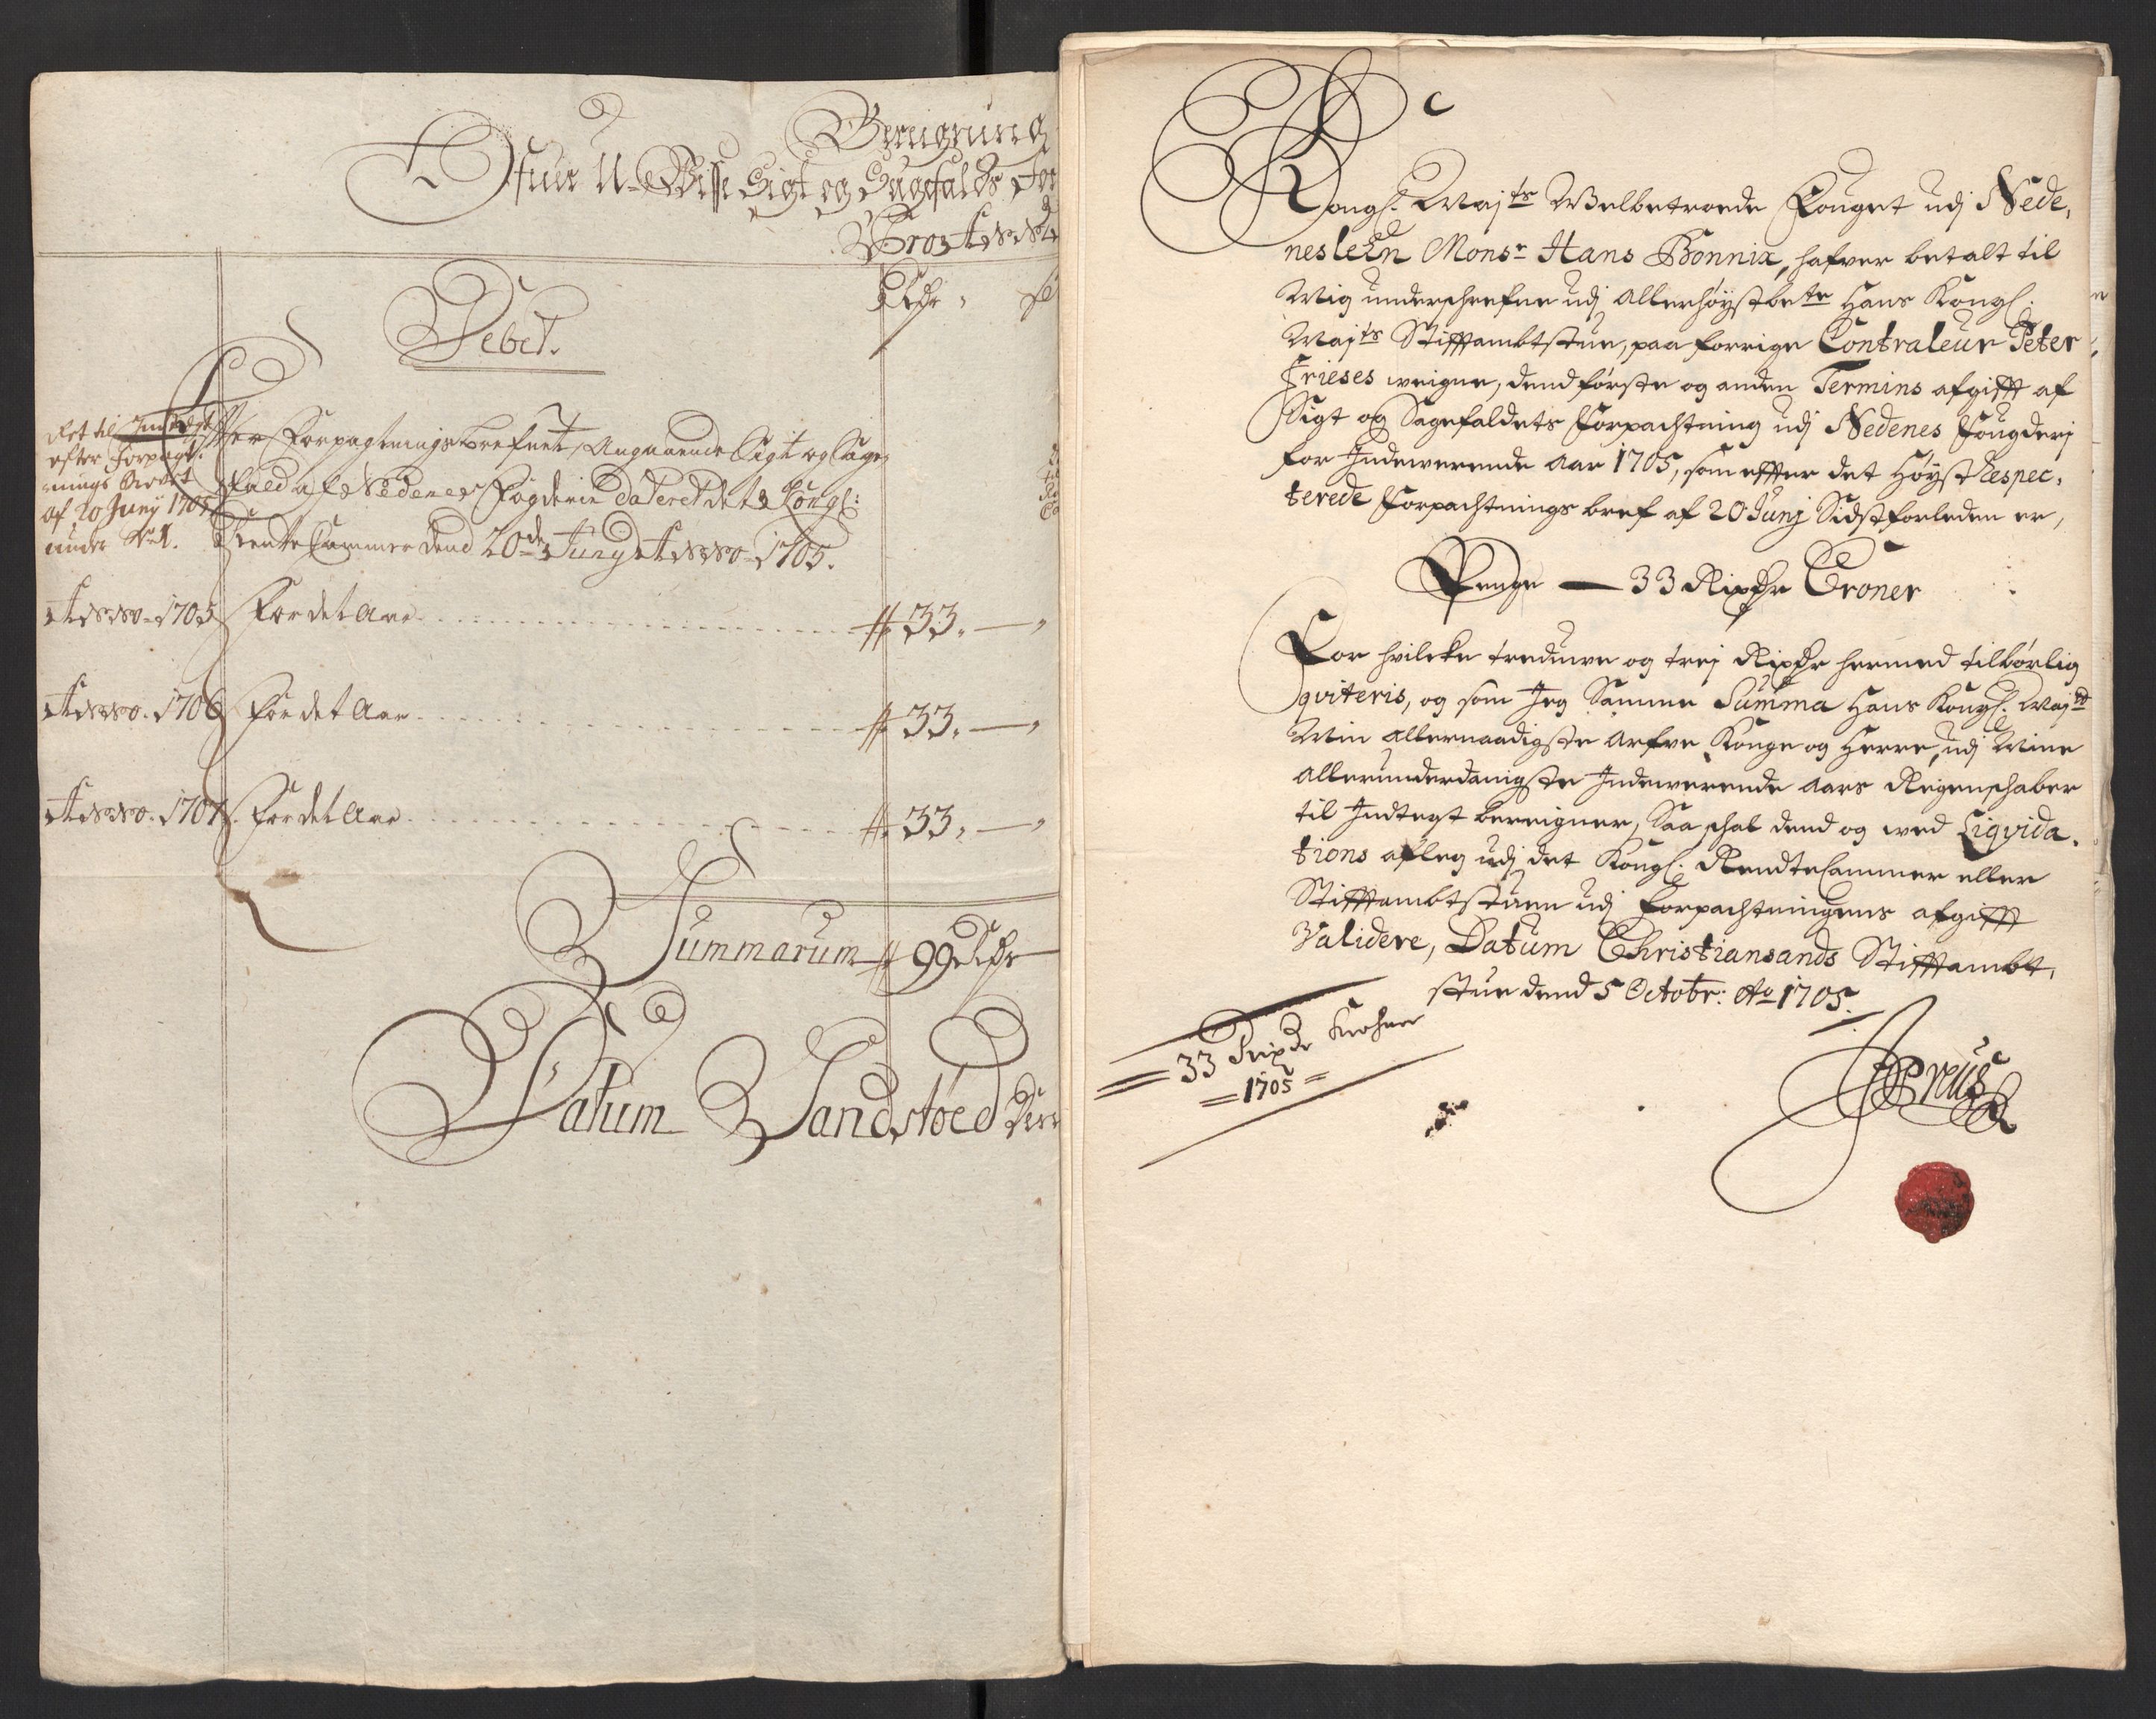 Beregning
Ofuer U-Visse Sigt og Sagefalds For
Pro Anno
Rdr
Debet.
Ret til Indtegt
efter Forpagt-
nings Brevet
af 20 Junij 1705
under No 1.
Efter Forpagtningsbrefuet, Angaaende Sigt og Sage
fald af Nedenes Fogderie Dateret det Kongl:
Rente Cammer dend 20de Junij Anno 1705.
Anno 1705 For det Aar 33.
Anno 1706 For det Aar 33.
Anno 1707 For det Aar 33.
Summarum 99 Rdr
Datum Sandstøed den
C
Kongl. Maj.ts Welbetroede Fouget udj Nede,
nes lehn Monsr Hans Bonnix, hafver betalt til
Mig underschrefne udj Allerhøystbete Hans Kongl.
Maj.ts Stifftambtstue, paa forrige Contraleur Peter
Frieses veigne, dend første og anden Termins afgifft af
Sigt og Sagefaldets Forpachtning udj Nedenes Fougderj
for Indewerende Aar 1705, som effter det Høyst Respec,
terede Forpachtnings bref af 20 Junj Sidstforleden er,
Penge — 33 Rixdr Croner
For hvilcke trediuve og trej Rixdr hermed tilbørlig
qviteris, og som Jeg Samme Summa Hans Kongl. Maj.td
Min Allernaadigste Arfve Konge og Herre, udj Mine
Allerunderdanigste Indewerende Aars Regenschaber
til Indtegt bereigner, Saa schal dend og ved Liqvida,
tions afleg udj det Kongl. Rendte Cammer eller
Stifftambtstuen udj Forpachtningens afgifft
Validere, Datum Christiansands Stifftambt,
stue dend 5 Octobr: Ao 1705.
33 Rixdr Crohner
1705
JPreus